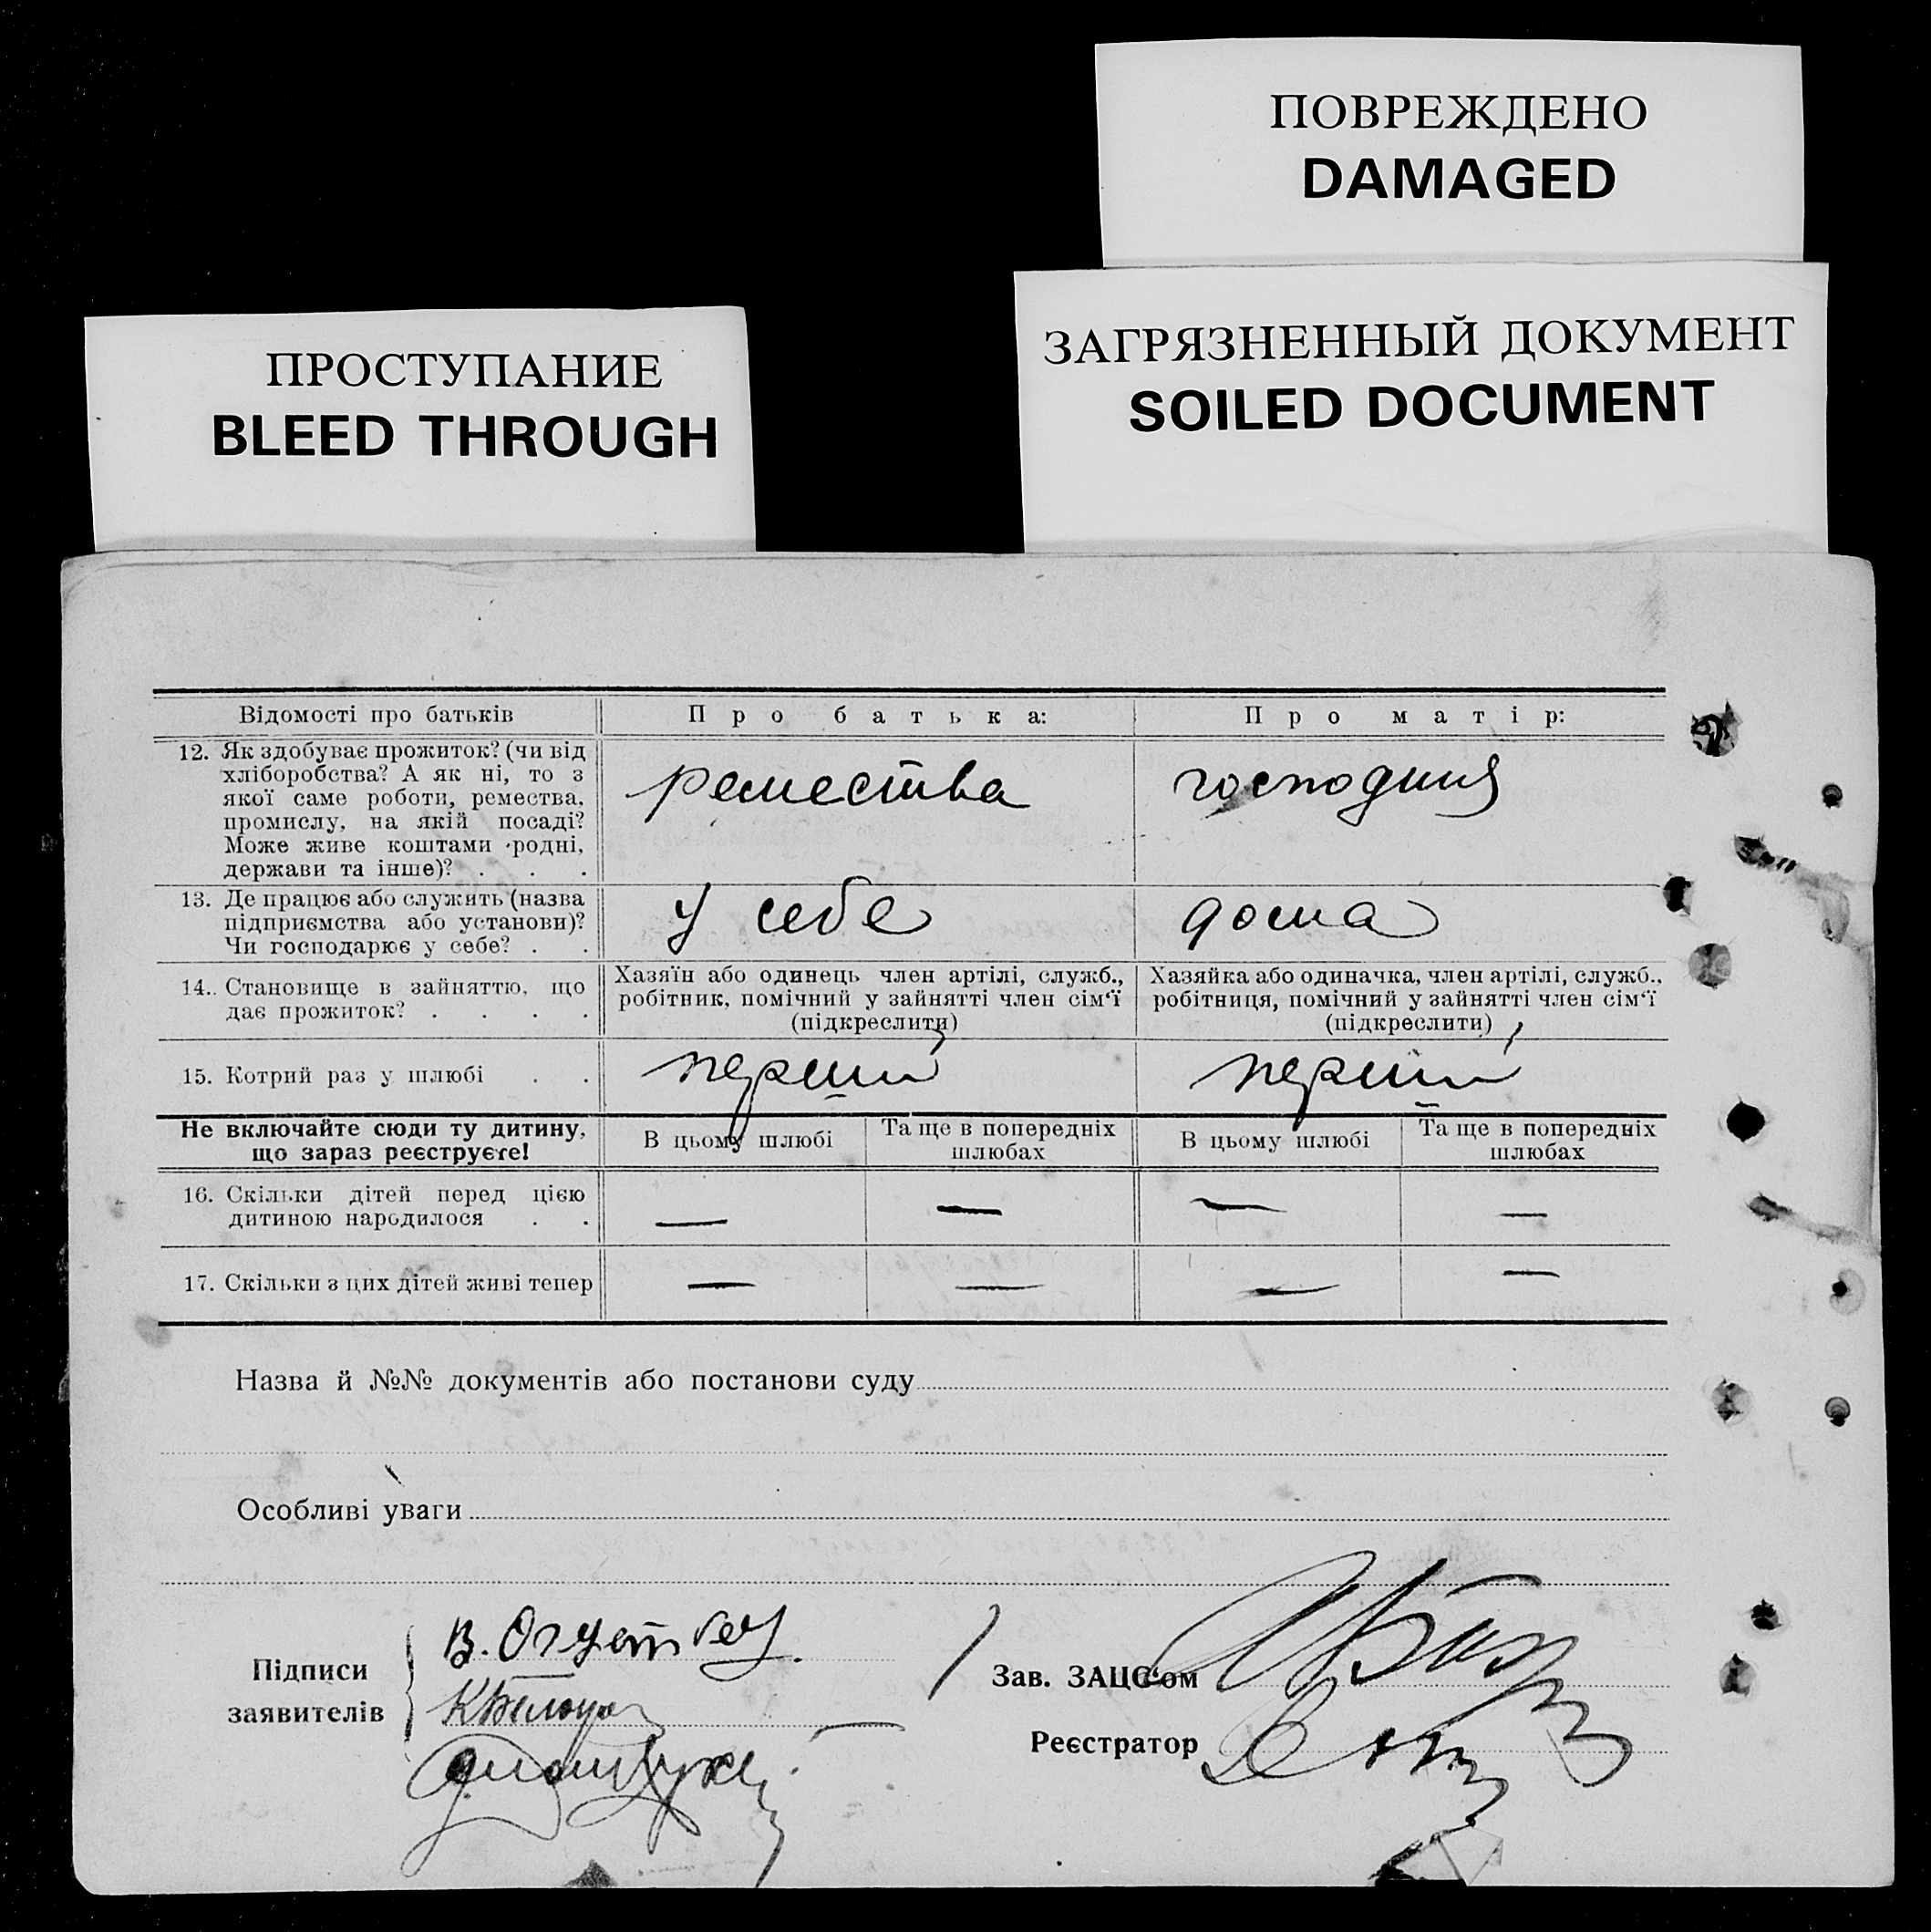 ПОВРЕЖДЕНО
DAMAGED
ЗАГРЯЗНЕННЫЙ ДОКУМЕНТ
SOILED DOCUMENT
ПРОСТУПАНИЕ
BLEED THROUGH
Відомості про батьків
Про батька:
Про матір:
12. Як здобуває прожиток? (чи від
хліборобства? А як ні, то з
якої саме роботи, ремества,
промислу, на якій посаді?
Може живе коштами родні,
держави та інше)? . . .
ремества
господиня
13. Де працює або служить (назва
підприємства або установи)?
Чи господарює у себе? . .
у себе
дома
14. Становище в зайняттю, що
дає прожиток? . . . .
Хазяїн або одинець член артілі, служб.,
робітник, помічний у зайнятті член сім'ї
(підкреслити)
Хазяйка або одиначка, член артілі, служб.,
робітниця, помічний у зайнятті член сім'ї
(підкреслити)
15. Котрий раз у шлюбі . .
перший
перший
Не включайте сюди ту дитину,
що зараз реєструєте!
В цьому шлюбі
Та ще в попередніх
шлюбах
В цьому шлюбі
Та ще в попередніх
шлюбах
16. Скільки дітей перед цією
дитиною народилося . .
— — — —
17. Скільки з цих дітей живі тепер
— — — —
Назва й №№ документів або постанови суду
Особливі уваги
Підписи
заявителів
В.
Зав. ЗАЦС'ом
Реєстратор